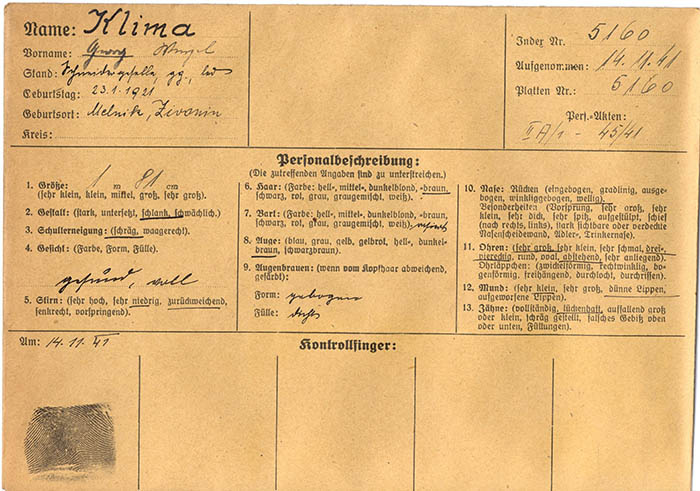 Name: Klima
Vorname: Georg Wenzel
Stand: Schneidergeselle, gg., led
Geburtstag: 23.1.1921
Geburtsort: Melnik, Zivonin
Kreis:
Index Nr. 5160
Aufgenommen: 14.11.41
Platten Nr.: 5160
Pers.-Akten:
II A/1 - 45/41
Personalbeschreibung:
(Die zutreffenden Angaben sind zu unterstreichen.)
1. Größe: 1 m 81 cm
(sehr klein, klein, mittel, groß, sehr groß).
2. Gestalt: (stark, untersetzt, schlank, schwächlich).
3. Schulterneigung: (schräg, waagerecht).
4. Gesicht: (Farbe, Form, Fülle).
gesund, voll
5. Stirn: (sehr hoch, sehr niedrig, zurückweichend,
senkrecht, vorspringend).
6. Haar: (Farbe: hell-, mittel-, dunkelblond, -braun,
schwarz, rot, grau, graugemischt, weiß).
7. Bart: (Farbe: hell-, mittel-, dunkelblond, -braun,
schwarz, rot, grau, graugemischt, weiß),
8. Auge: (blau, grau, gelb, gelbrot, hell-, dunkel-
braun, schwarzbraun).
9. Augenbrauen: (wenn vom Kopfhaar abweichend,
gefärbt):
Form: gebogen
Fülle: dicht
10. Nase: Rücken (eingebogen, gradlinig, ausge-
bogen, winkliggebogen, wellig).
Besonderheiten (Vorsprung, sehr groß, sehr
klein, sehr dick, sehr spitz, aufgestülpt, schief
(nach rechts, links), stark sichtbare oder verdeckte
Nasenscheidewand, Adler-, Trinkernase).
11. Ohren: (sehr groß, sehr klein, sehr schmal, drei-,
viereckig, rund, oval, abstehend, sehr anliegend).
Ohrläppchen: (zwickelförmig, rechtwinklig, bo-
genförmig, freihängend, durchlocht, durchrissen).
12. Mund: (sehr klein, sehr groß, dünne Lippen,
aufgeworfene Lippen).
13. Zähne: (vollständig, lückenhaft, auffallend groß
oder klein, schräg gestellt, falsches Gebiß oben
oder unten, Füllungen).
Am: 14.11.41
Kontrollfinger: